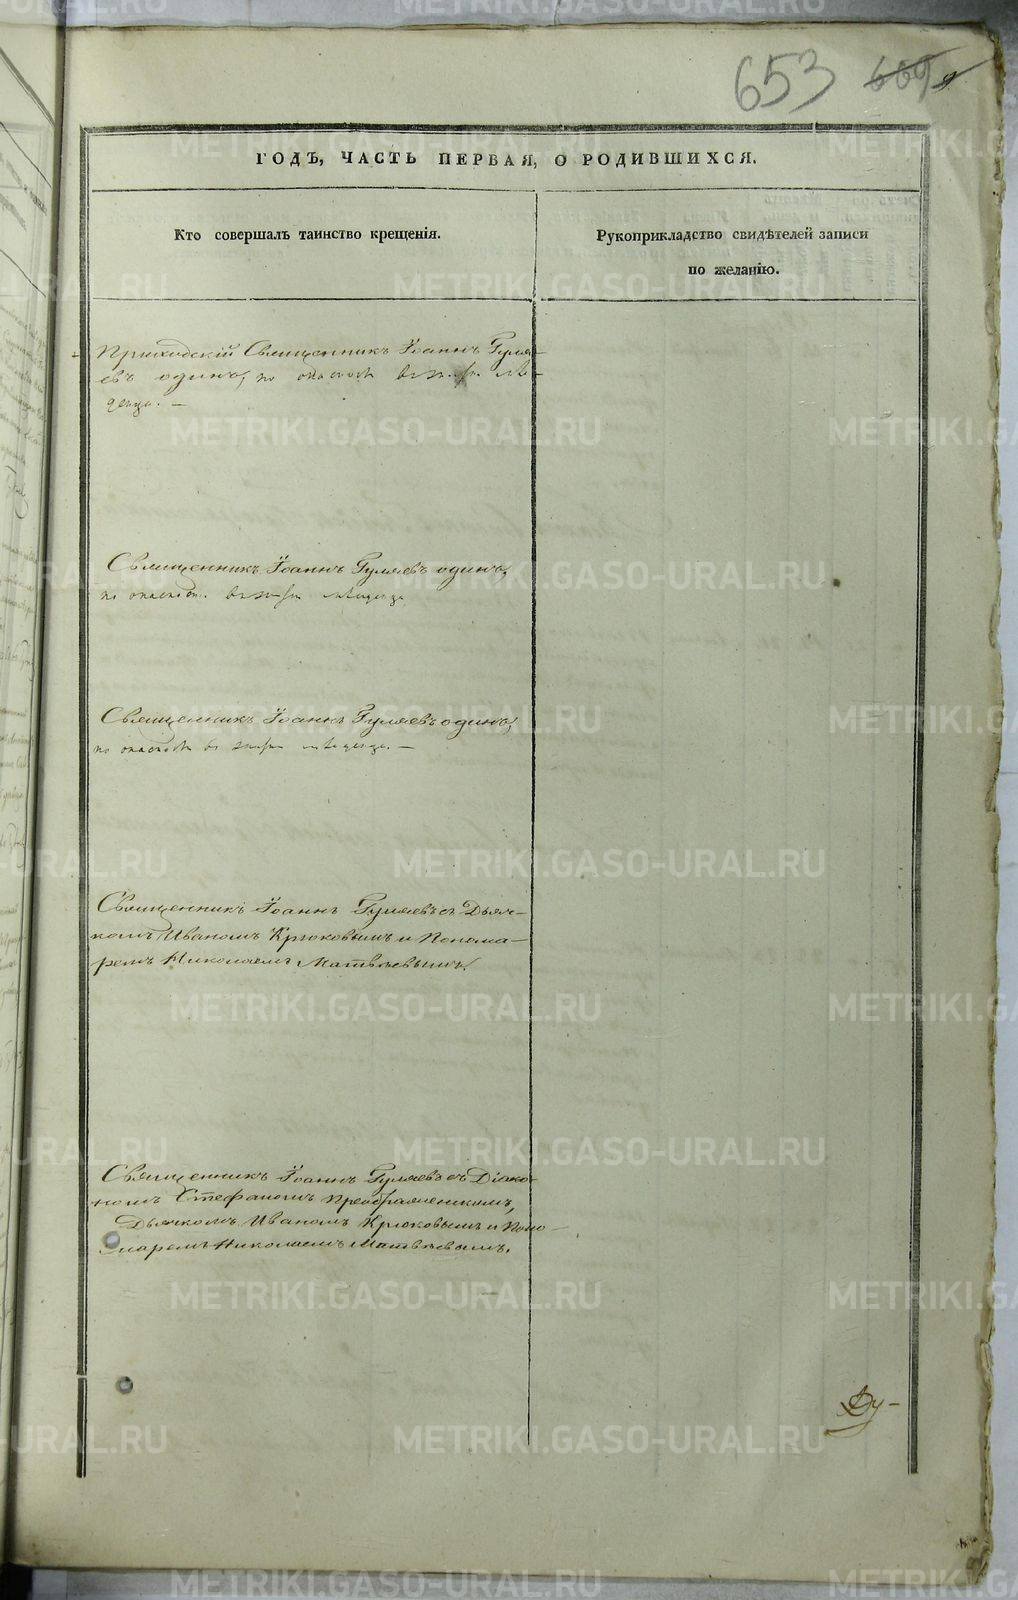 653 669
ГОДЪ, ЧАСТЬ ПЕРВАЯ, О РОДИВШИХСЯ.
Кто совершалъ таинство крещенія.
Рукоприкладство свидѣтелей записи
по желанію.
Приходскій Священникъ Іоаннъ Гуля-
евъ одинъ, по опасности въ жизни мла-
денца. —
Священникъ Іоаннъ Гуляевъ одинъ,
по опасности въ жизни младенца
Священникъ Іоаннъ Гуляевъ одинъ,
по опасности въ жизни младенца. —
Священникъ Іоаннъ Гуляевъ съ Дьяч-
комъ Иваномъ Крюковымъ и Понома-
ремъ Николаемъ Матвѣевымъ.
Священникъ Іоаннъ Гуляевъ съ Діако-
номъ Стефаномъ Преображенскимъ,
Дьячкомъ Иваномъ Крюковымъ и Поно-
маремъ Николаемъ Матвѣевымъ.
Ду-
METRIKI.GASO-URAL.RU